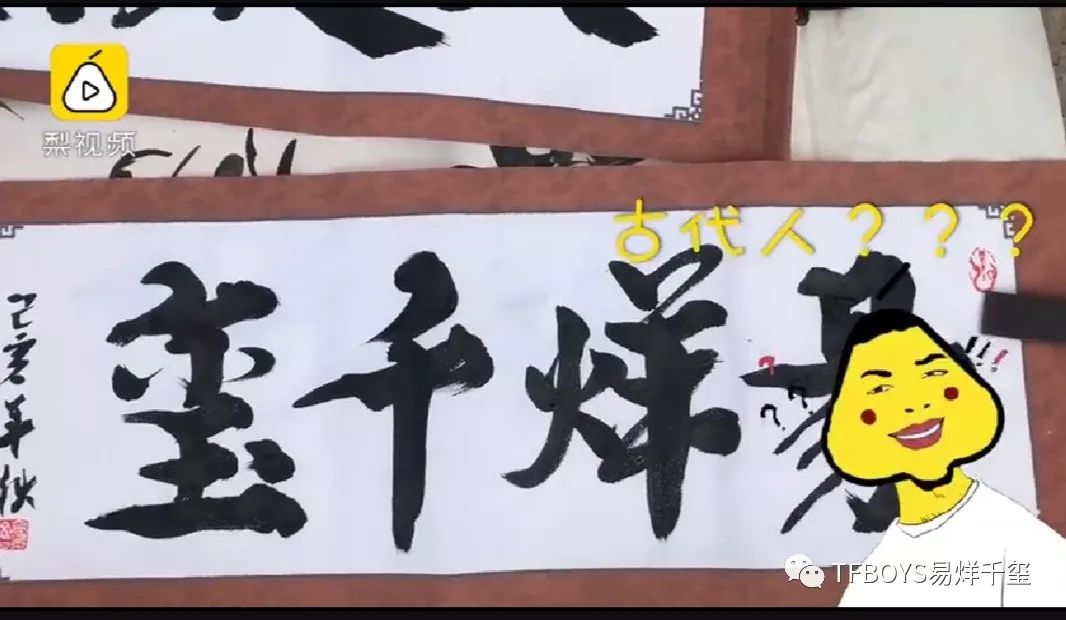 梨视频
古代人？？？
易烊千玺
己亥年
TFBOYS易烊千玺